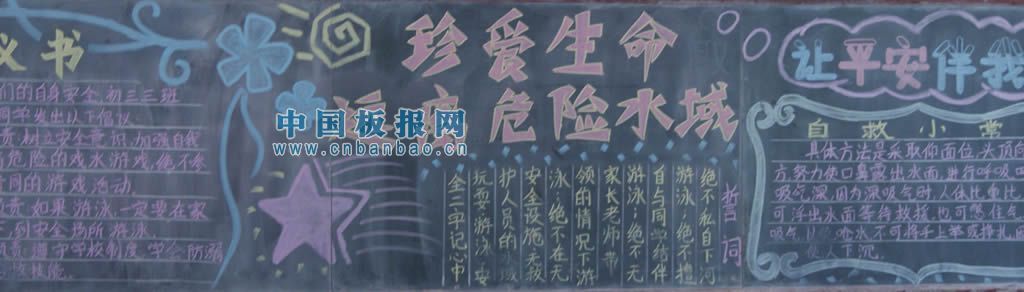 议书
们的自身安全,初三三班
同学发出以下倡议
责,树立安全意识,加强自我
危险的戏水游戏,绝不参
同的游戏活动.
责.如果游泳,一定要在家
到安全场所游泳.
守学校制度,学会防溺
技能.
珍爱生命
远离危险水域
中国板报网
www.cnbanbao.cn
誓词
绝不私自下河
游泳;绝不擅
自与同学结伴
游泳;绝不无
家长老师带
领的情况下游
泳,绝不在无
安全设施,无救
护人员的水域
玩耍,游泳,安
全二字记心中
让平安伴我
自救小常
具体方法是采取仰面位,头顶向
方努力使口鼻露出水面,进行呼吸
吸气深,因为深吸气时,人体比重比
可浮出水面等待救援,也可憋住气
呛水,不可将手上举或挣扎,
下沉.